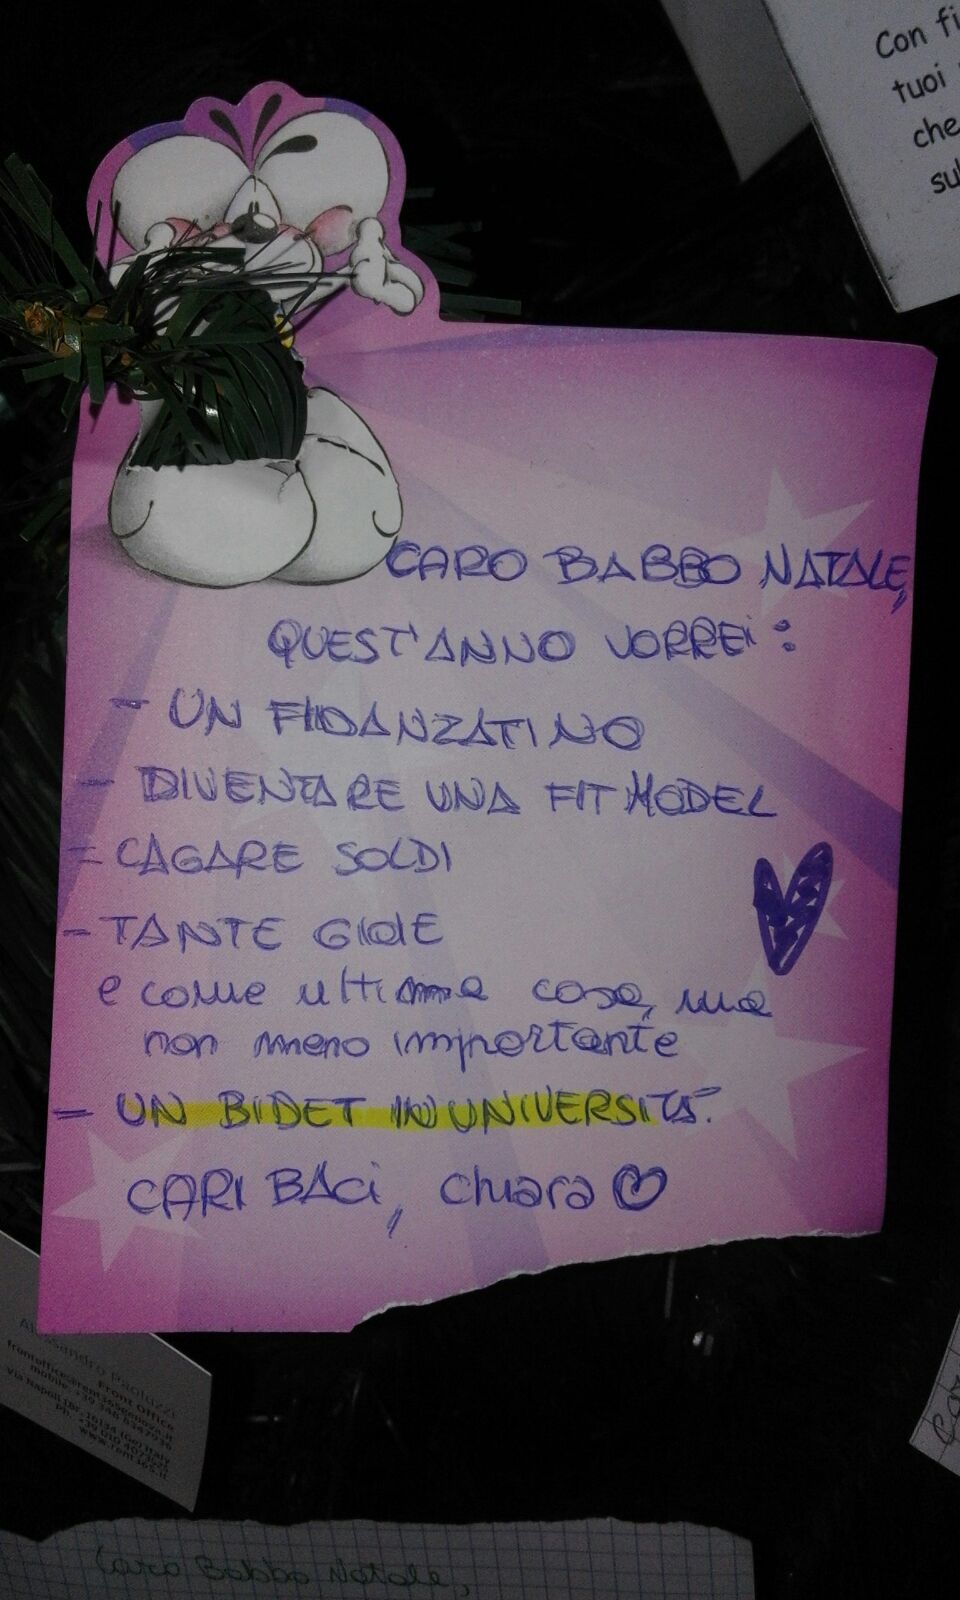 Con fi
tuoi
che
sul
CARO BABBO NATALE,
QUEST'ANNO VORREI:
- UN FIDANZATINO
- DIVENTARE UNA FIT MODEL
- CAGARE SOLDI
- TANTE GIOIE
e come ultima cosa, ma
non meno importante
- UN BIDET IN UNIVERSITÀ.
CARI BACI, Chiara
Front Office
www.rent365.it
Caro Babbo Natale,